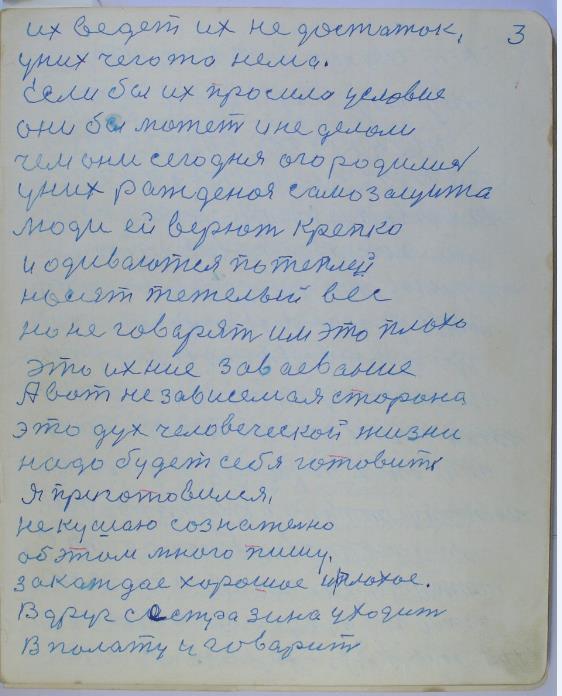 3
их ведет их не достаток,
уних чегото нема.
Если бы их просила условие
они бы может и не делоли
чем они сегодня огородилия
уних ражденоя самозащита
люди ей верют крепко
и одиваются потеплей
носят тежелый вес
но не говарят им это плохо
это ихние заваевание
А вот не зависемая сторона
это дух человеческой жизни
надо будет себя готовить
Я приготовился,
не кушаю сознателно
об этом много пишу,
за каждае хорошое и плохое.
Вдруг сестра зина уходит
В полату и говарит